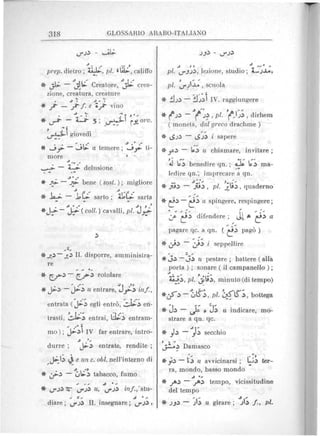 318 GLOSSARIO ARABO-ITALIANO
خلف — درس
درس — دور
prep. dietro; خليفة, pl. خلفاء, califfo
* خلق — خالق Creatore, خلق creazione, creatura, creature
* خمر — خمر f. e خمرة vino
giovedì
a temere; timore
delusione
* خير — خير bene (sost.); migliore
* خيط — خياط sarto; خياطة sarta
* خيل — خيل (coll.) cavalli, pl. خيول
د
II. disporre, amministrare
rotolare
* دخل — دخل u entrare, دخول inf., entrata (دخل egli entrò, دخلت entrasti, دخلت entrai, دخلنا entrammo); أدخل IV far entrare, introdurre; دخل entrate, rendite; داخل e an c. obl. nell'interno di
* دخن — دخان tabacco, fumo
* درس — درس u, درس inf., studiare; درّس II. insegnare; درس,
pl. دروس, lezione, studio; مدرسة, pl. مدارس, scuola
* درك — أدرك IV. raggiungere
* درهم — درهم, pl. دراهم, dirhem (moneta, dal greco drachme)
* درى — درى i sapere
* دعو — دعا u chiamare, invitare; دعا له benedire qn.; دعا عليه maledire qn.; imprecare a qn.
* دفتر — دفتر, pl. دفاتر, quaderno
* دفع — دفع a spingere, respingere; دفع عن difendere; دفع إلى a pagare qc. a qn. (دفع pagò)
* دفن — دفن i seppellire
* دق — دق u pestare; battere (alla porta); sonare (il campanello); دقيقة, pl. دقائق, minuto (di tempo)
* دكن — دكان, pl. دكاكين, bottega
* دل — دل على u indicare, mostrare a qn. qc.
* دلو — دلو secchio
دمشق Damasco
* دنو — دنا u avvicinarsi; دنيا terra, mondo, basso mondo
* دهر — دهر tempo, vicissitudine del tempo
* دور — دار u girare; دار f., pl.